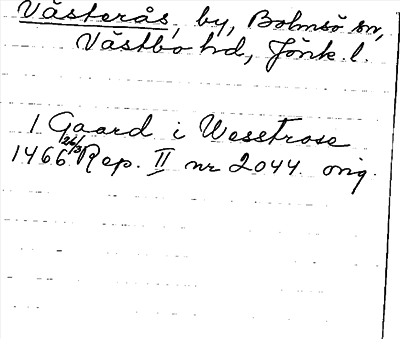 Västerås, by, Bolmsö sn,
Västbo hd, Jönk. l.
1 Gaard i Wesstrose
1466 26/3 Rep. II nr 2044. orig.